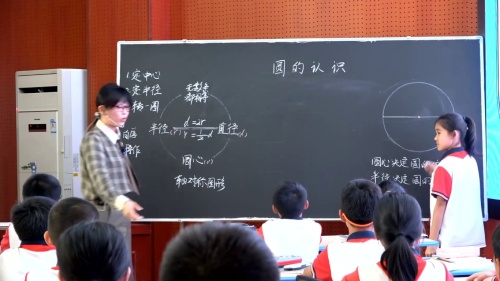 圆的认识
1定中心
2定半径
3转一圈
无数条
都相等
半径(r) d=2r 直径(d)
r=½d
圆心(o)
轴对称图形
圆心决定圆的
半径决定圆的